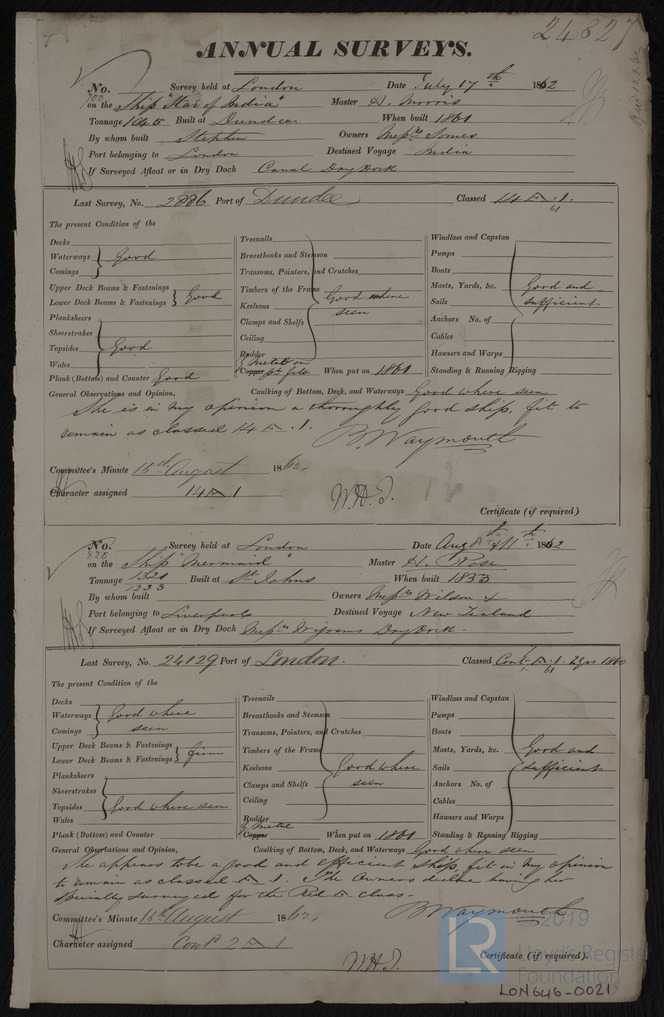 24827
ANNUAL SURVEYS.
No. Survey held at London Date July 17th 1862
on the Ship "Star of India" Master H. Morris
Tonnage 1045 Built at Dundee When built 1861
By whom built Stephen Owners Messrs Somes
Port belonging to London Destined Voyage India
If Surveyed Afloat or in Dry Dock Canal Dry Dock
Last Survey, No. 2886 Port of Dundee Classed 14 A .1.
61
The present Condition of the
Decks
Waterways Good
Comings
Upper Deck Beams & Fastenings
Lower Deck Beams & Fastenings Good
Planksheers
Sheerstrakes
Topsides Good
Wales
Plank (Bottom) and Counter Good
Treenails
Breasthooks and Stemson
Transoms, Pointers, and Crutches
Timbers of the Frame Good where
Keelsons seen
Clamps and Shelfs
Ceiling
Rudder
Y. Metal on
Copper felt When put on 1861
Windlass and Capstan
Pumps
Boats
Masts, Yards, &c. Good and
Sails sufficient
Anchors No. of
Cables
Hawsers and Warps
Standing & Running Rigging
General Observations and Opinion, Caulking of Bottom, Deck, and Waterways Good where seen
She is in my opinion a thoroughly good ship, fit to
remain as classed 14 A .1.
B. Waymouth
Committee's Minute 15th August 1862.
Character assigned 14 A 1
W.H.T.
Certificate (if required)
No. Survey held at London Date Aug 8th & 11th 1862
on the Ship "Mermaid" Master H. Rose
Tonnage 1321 Built at St. Johns When built 1853
1233
By whom built Owners Messrs Wilson &
Port belonging to Liverpool Destined Voyage New Zealand
If Surveyed Afloat or in Dry Dock Messrs Wigrams Dry Dock.
Last Survey, No. 24129 Port of London. Classed Cont. A .1. 2 yrs 1860
61
The present Condition of the
Decks
Waterways Good where
Comings seen
Upper Deck Beams & Fastenings
Lower Deck Beams & Fastenings firm
Planksheers
Sheerstrakes
Topsides Good where seen
Wales
Plank (Bottom) and Counter
Treenails
Breasthooks and Stemson
Transoms, Pointers, and Crutches
Timbers of the Frame
Keelsons Good where
Clamps and Shelfs seen
Ceiling
Rudder
Y. Metal
Copper When put on 1861
Windlass and Capstan
Pumps
Boats
Masts, Yards, &c. Good and
Sails sufficient
Anchors No. of
Cables
Hawsers and Warps
Standing & Running Rigging
General Observations and Opinion, Caulking of Bottom, Deck, and Waterways Good where seen
She appears to be a good and efficient Ship, fit in my opinion
to remain as classed A .1. The Owners decline having her
specially surveyed for the Red A class.
B. Waymouth
Committee's Minute 15th August 1862.
Character assigned Cont. 2 A 1
W.H.T.
Certificate (if required).
© 2019
LR
Lloyd's Register
Foundation
LON646-0021